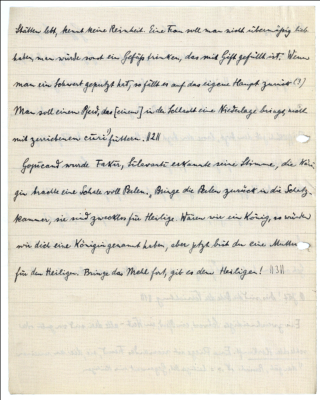 Stätten lebt, kennt keine Reinheit. Eine Frau soll man nicht übermäßig lieb
haben, man würde sonst ein Gefäß trinken, das mit Gift gefüllt ist. Wenn
man ein Schwert geputzt hat, so fällt es auf das eigene Haupt zurück (!)
Man soll einem Pferd, das [einem] in der Schlacht eine Niederlage bringt, nicht
mit zerriebenen füttern. ||2||
Gopicand wurde Fakir, erkannte seine Stimme, die Köni-
gin brachte eine Schale voll Perlen. „Bringe die Perlen zurück in die Schatz-
kammer, sie sind zwecklos für Heilige. Wären wir ein König, so würden
wir dich eine Königin genannt haben, aber jetzt bist du eine Mutter
für den Heiligen. Bringe das Mehl fort, gib es dem Heiligen! ||3||